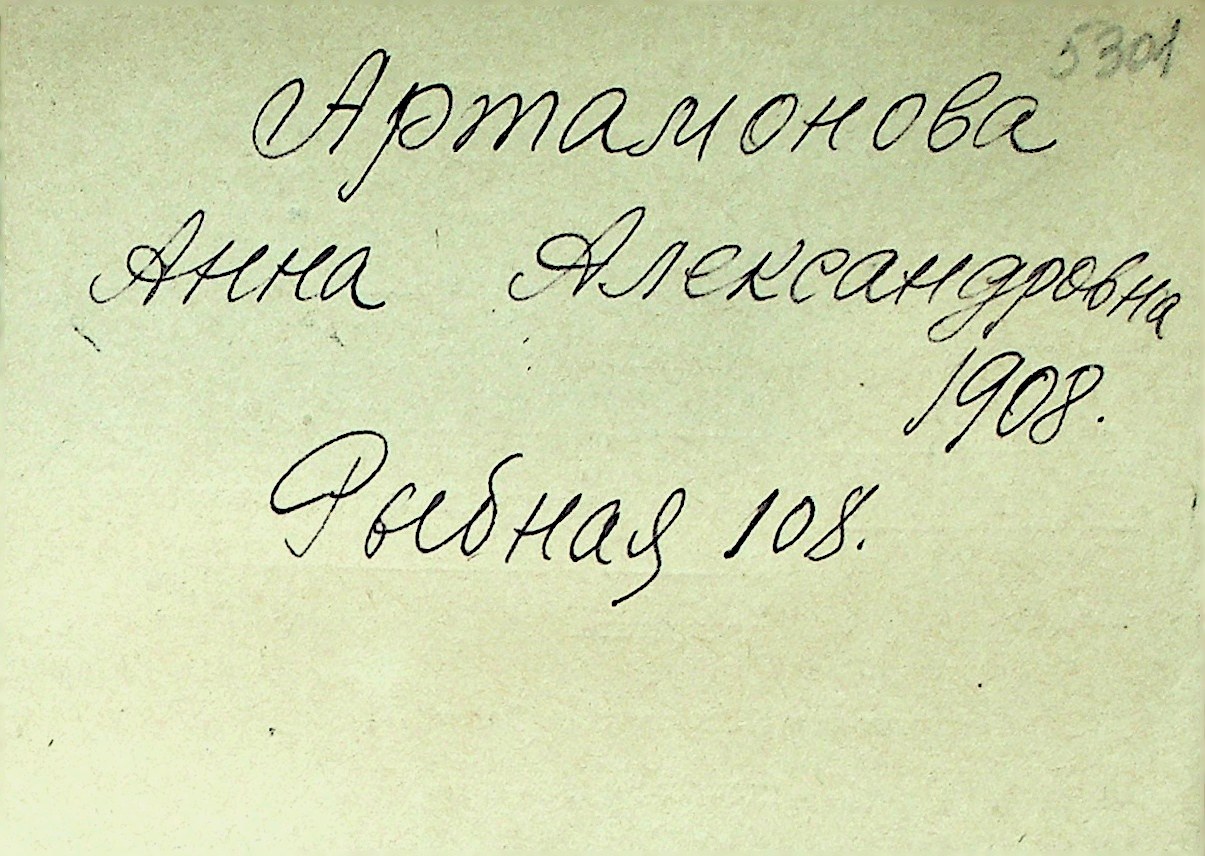 5301
Артамонова
Анна Александровна
1908.
Рыбная 108.